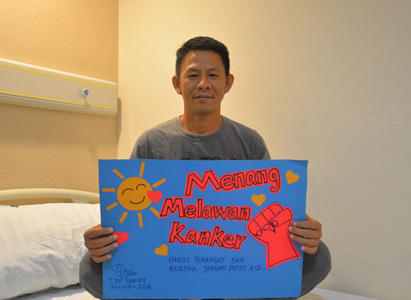 Menang
Melawan
Kanker
HARUS SEMANGAT DAN
BERDOA JANGAN PUTUS ASA.